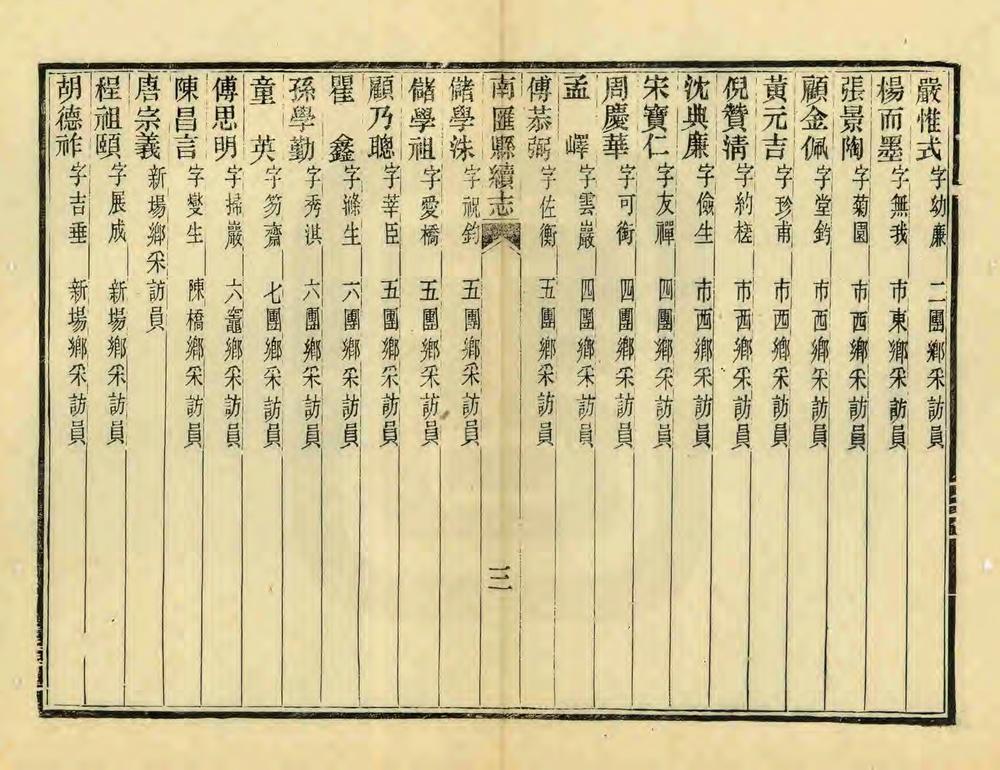 嚴惟式 字幼廉 二團鄉采訪員
楊而墨 字無我 市東鄉采訪員
張景陶 字菊園 市西鄉采訪員
顧金佩 字堂鈞 市西鄉采訪員
黃元吉 字珍甫 市西鄉采訪員
倪贊清 字約槎 市西鄉采訪員
沈典廉 字儉生 市西鄉采訪員
宋寶仁 字友禪 四團鄉采訪員
周慶華 字可衡 四團鄉采訪員
孟嶧 字雲巖 四團鄉采訪員
傅恭弼 字佐衡 五團鄉采訪員
南匯縣續志 三
儲學洙 字祝鈞 五團鄉采訪員
儲學祖 字愛橋 五團鄉采訪員
顧乃聰 字莘臣 五團鄉采訪員
瞿鑫 字滌生 六團鄉采訪員
孫學勤 字秀淇 六團鄉采訪員
童英 字笏齋 七團鄉采訪員
傅思明 字掃嚴 六竈鄉采訪員
陳昌言 字燮生 陳橋鄉采訪員
唐宗義 新場鄉采訪員
程祖頤 字展成 新場鄉采訪員
胡德祚 字吉垂 新場鄉采訪員